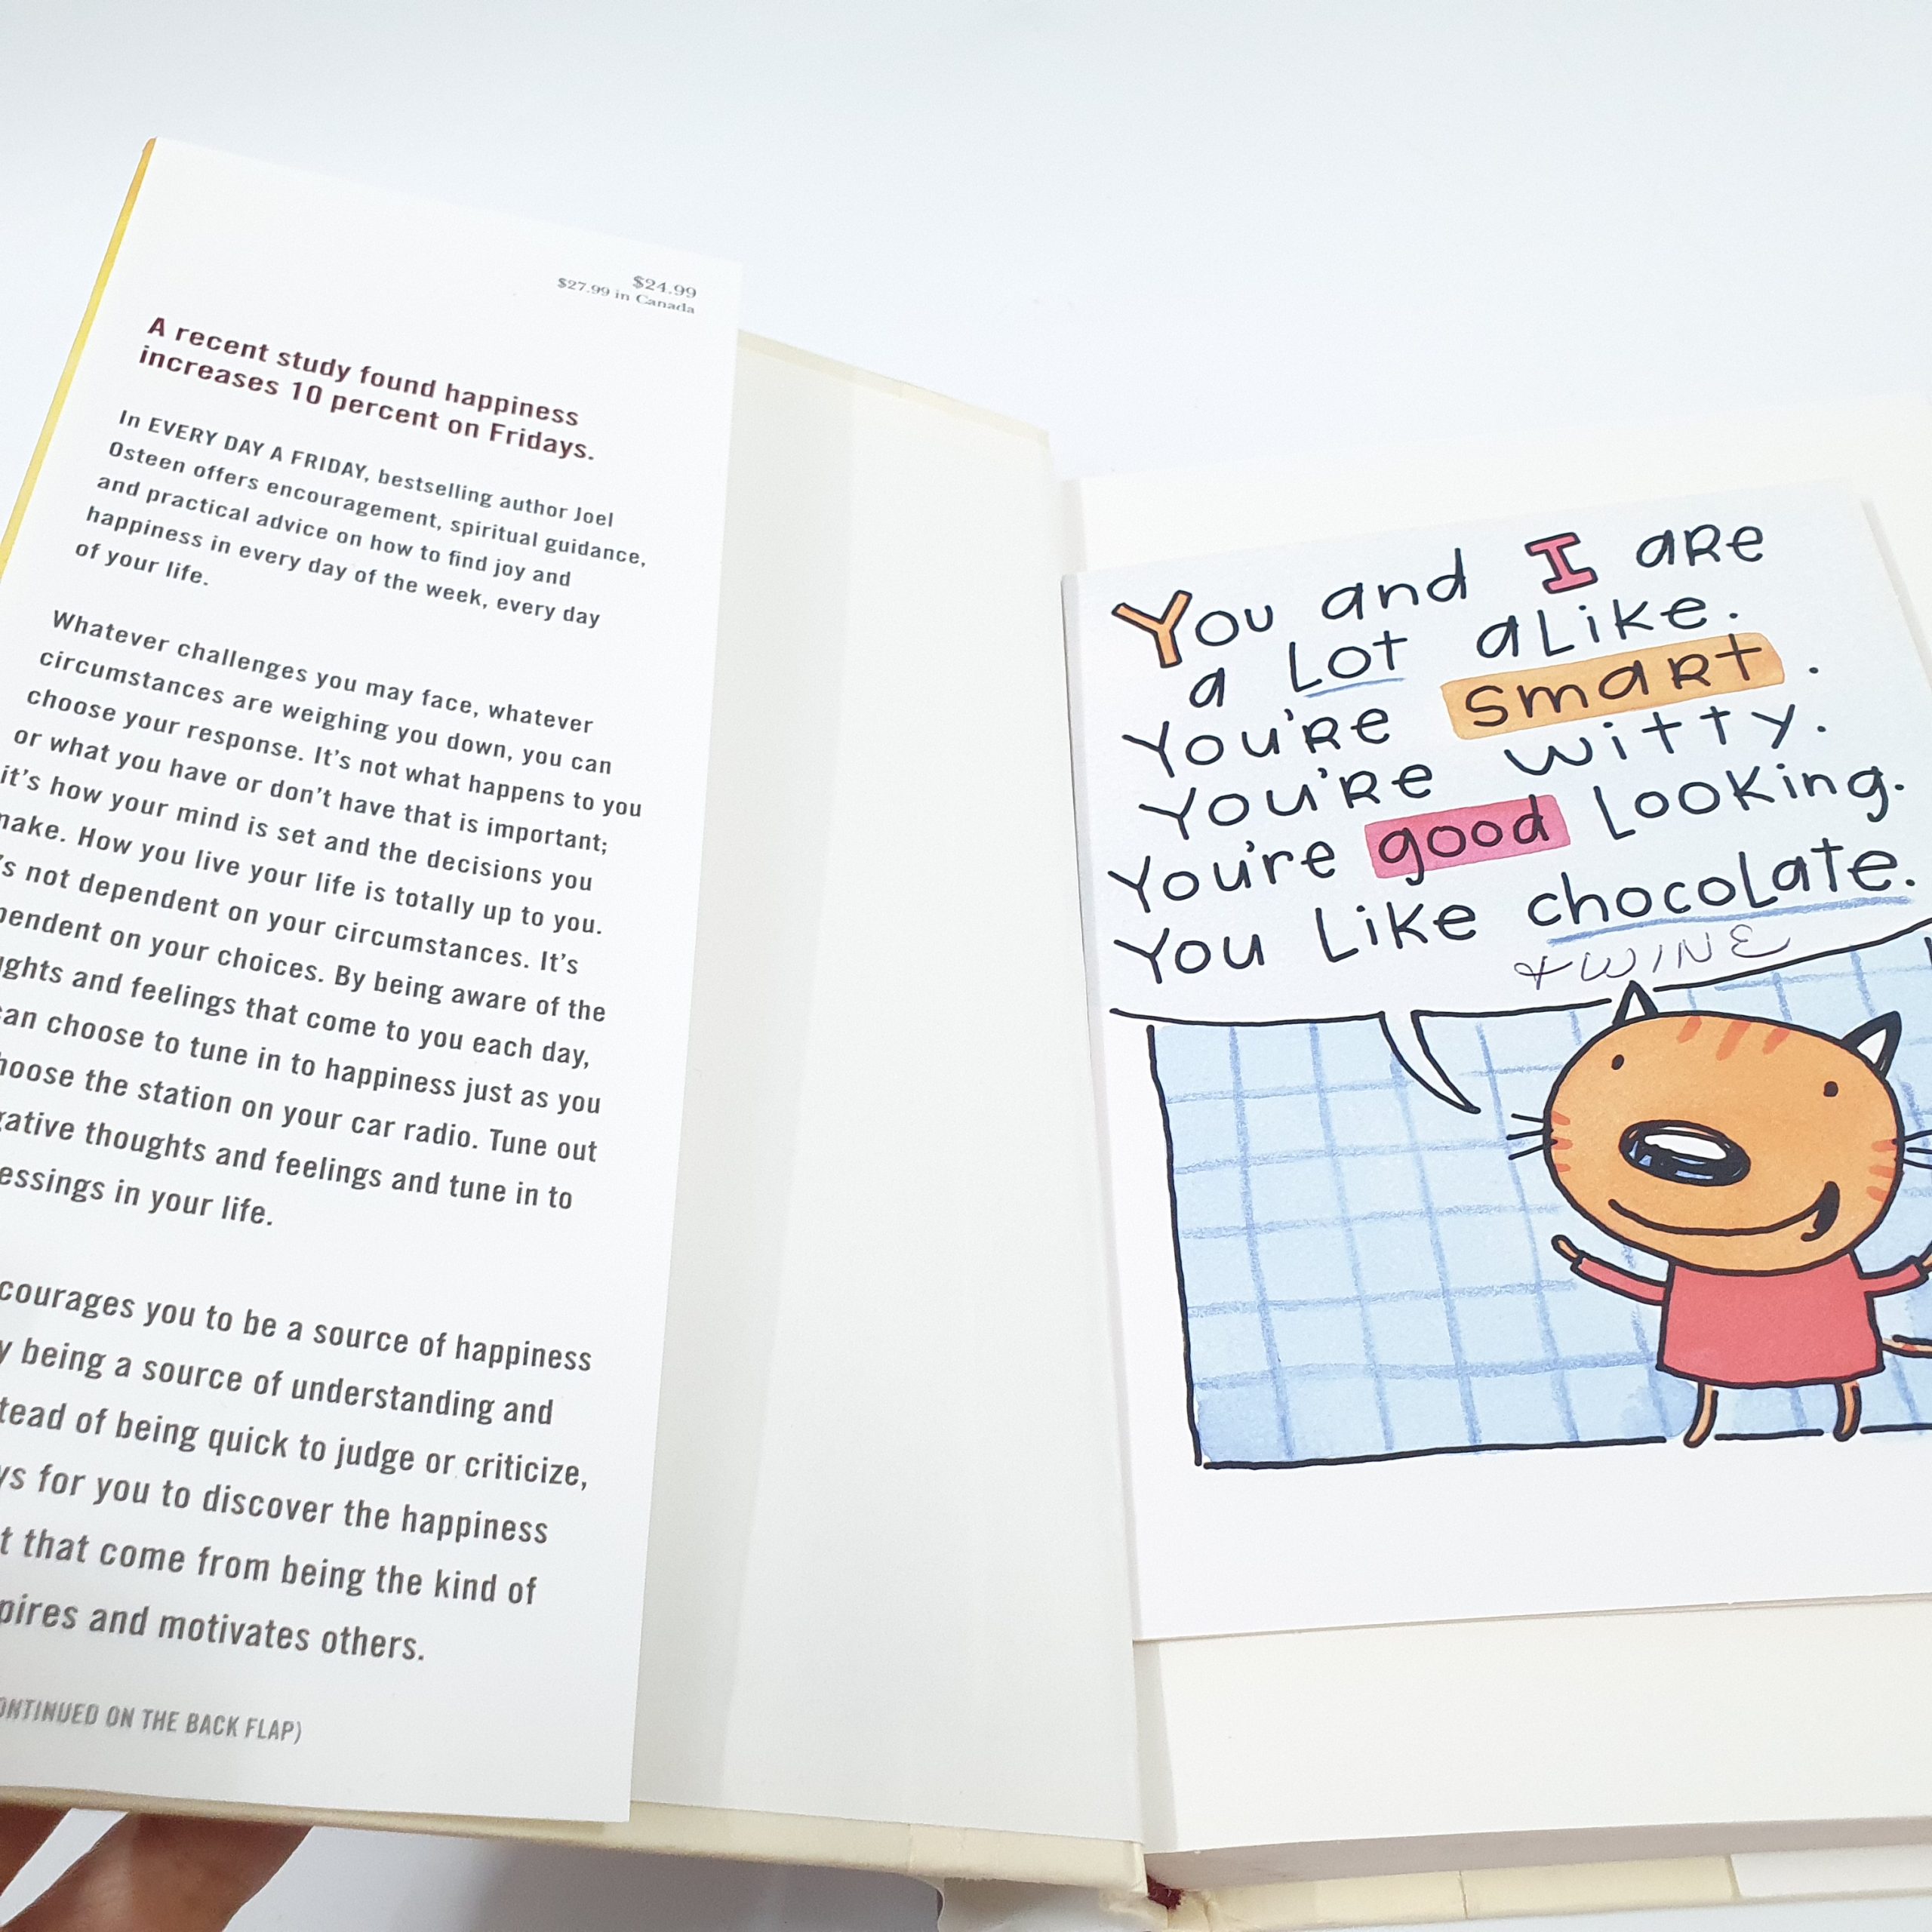 $24.99
$27.99 in Canada
A recent study found happiness
increases 10 percent on Fridays.
In EVERY DAY A FRIDAY, bestselling author Joel
Osteen offers encouragement, spiritual guidance,
and practical advice on how to find joy and
happiness in every day of the week, every day
of your life.
Whatever challenges you may face, whatever
circumstances are weighing you down, you can
choose your response. It's not what happens to you
or what you have or don't have that is important;
it's how your mind is set and the decisions you
make. How you live your life is totally up to you.
's not dependent on your circumstances. It's
pendent on your choices. By being aware of the
ughts and feelings that come to you each day,
can choose to tune in to happiness just as you
hoose the station on your car radio. Tune out
gative thoughts and feelings and tune in to
essings in your life.
courages you to be a source of happiness
y being a source of understanding and
tead of being quick to judge or criticize,
ys for you to discover the happiness
t that come from being the kind of
pires and motivates others.
ONTINUED ON THE BACK FLAP)
You and I are
a lot alike.
You're smart.
You're witty.
You're good looking.
You like chocolate.
+ WINE